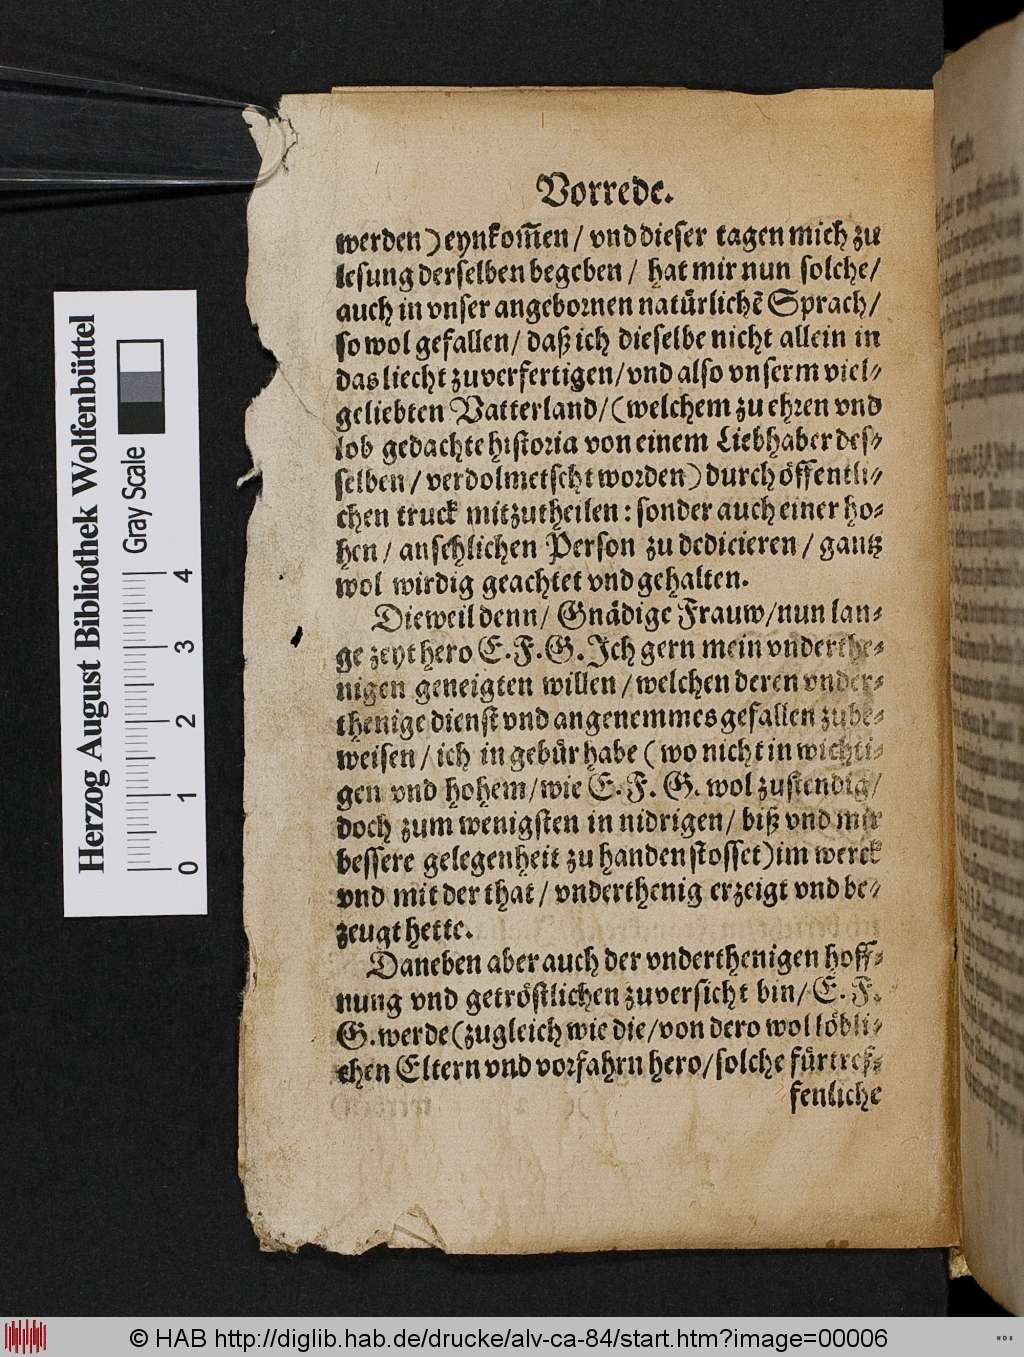 Vorrede.
werden) eynkom̃en / vnd dieser tagen mich zu
lesung derselben begeben / hat mir nun solche /
auch in vnser angebornen natürlichẽ Sprach /
so wol gefallen / daß ich dieselbe nicht allein in
das liecht zuverfertigen / vnd also vnserm viel-
geliebten Vatterland / (welchem zu ehren vnd
lob gedachte historia von einem Liebhaber des-
selben / verdolmetscht worden) durch öffentli-
chen truck mitzutheilen: sonder auch einer ho-
hen / ansehlichen Person zu dedicieren / gantz
wol wirdig geachtet vnd gehalten.
Dieweil denn / Gnädige Frauw / nun lan-
ge zeyt hero E. F. G. Ich gern mein vnderthe-
nigen geneigten willen / welchen deren vnder-
thenige dienst vnd angenemmes gefallen zube-
weisen / ich in gebür habe (wo nicht in wichti-
gen vnd hohem / wie E. F. G. wol zustendig /
doch zum wenigsten in nidrigen / biß vnd mir
bessere gelegenheit zu handen stosset) im werck
vnd mit der that / vnderthenig erzeigt vnd be-
zeugt hette.
Daneben aber auch der vnderthenigen hoff-
nung vnd getröstlichen zuversicht bin / E. F.
G. werde (zugleich wie die / von dero wol löbli-
chen Eltern vnd vorfahrn hero / solche fürtref-
fenliche
Herzog August Bibliothek Wolfenbüttel
Gray Scale
0 1 2 3 4
© HAB http://diglib.hab.de/drucke/alv-ca-84/start.htm?image=00006